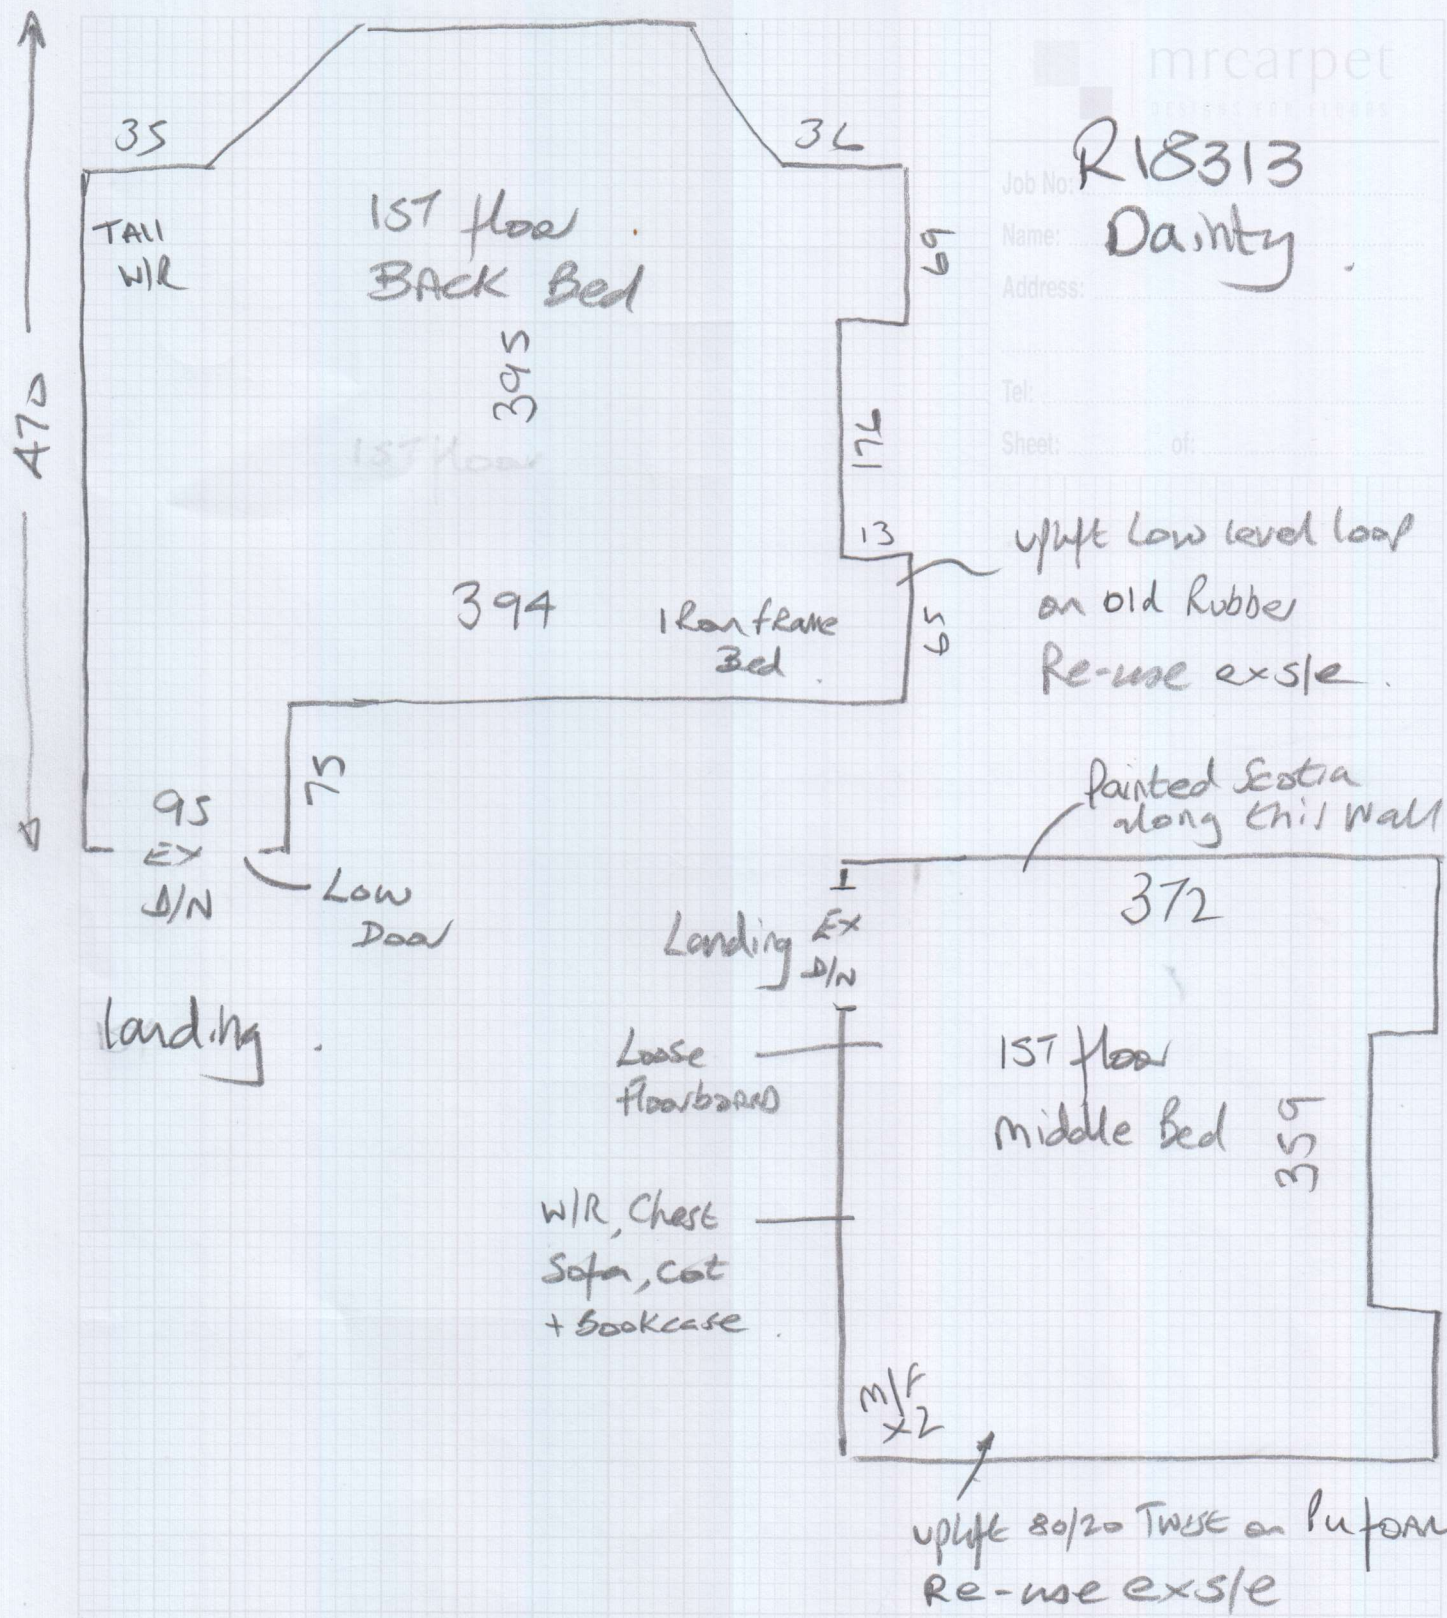 mrcarpet
DESIGNS FOR FLOORS
Job No: R18313
Name: Dainty
Address:
Tel:
Sheet: of:
470
35
36
TAll
W/R
1ST floor
BACK Bed
395
1ST floor
69
176
13
65
394
IRon fRAme
Bed
uplift Low level loop
on old Rubber
Re-use exs/e
75
95
EX
D/N
Low
Door
landing
Painted Scotia
along this wall
372
Landing EX
D/N
Loose
FloorboARD
1ST floor
Middle Bed
359
W/R, Chest
Sofa, Cot
+ Bookcase
M/F
x2
uplift 80/20 Twist on Pu foam
Re-use exs/e